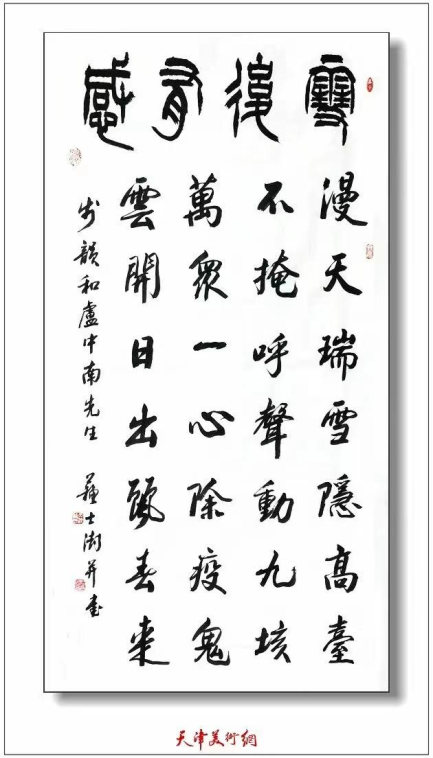 雪後有感
漫天瑞雪隱高臺
不掩呼聲動九垓
萬衆一心除疫鬼
雲開日出號春来
步韻和盧中南先生
蘇士澍并書
天津美術網